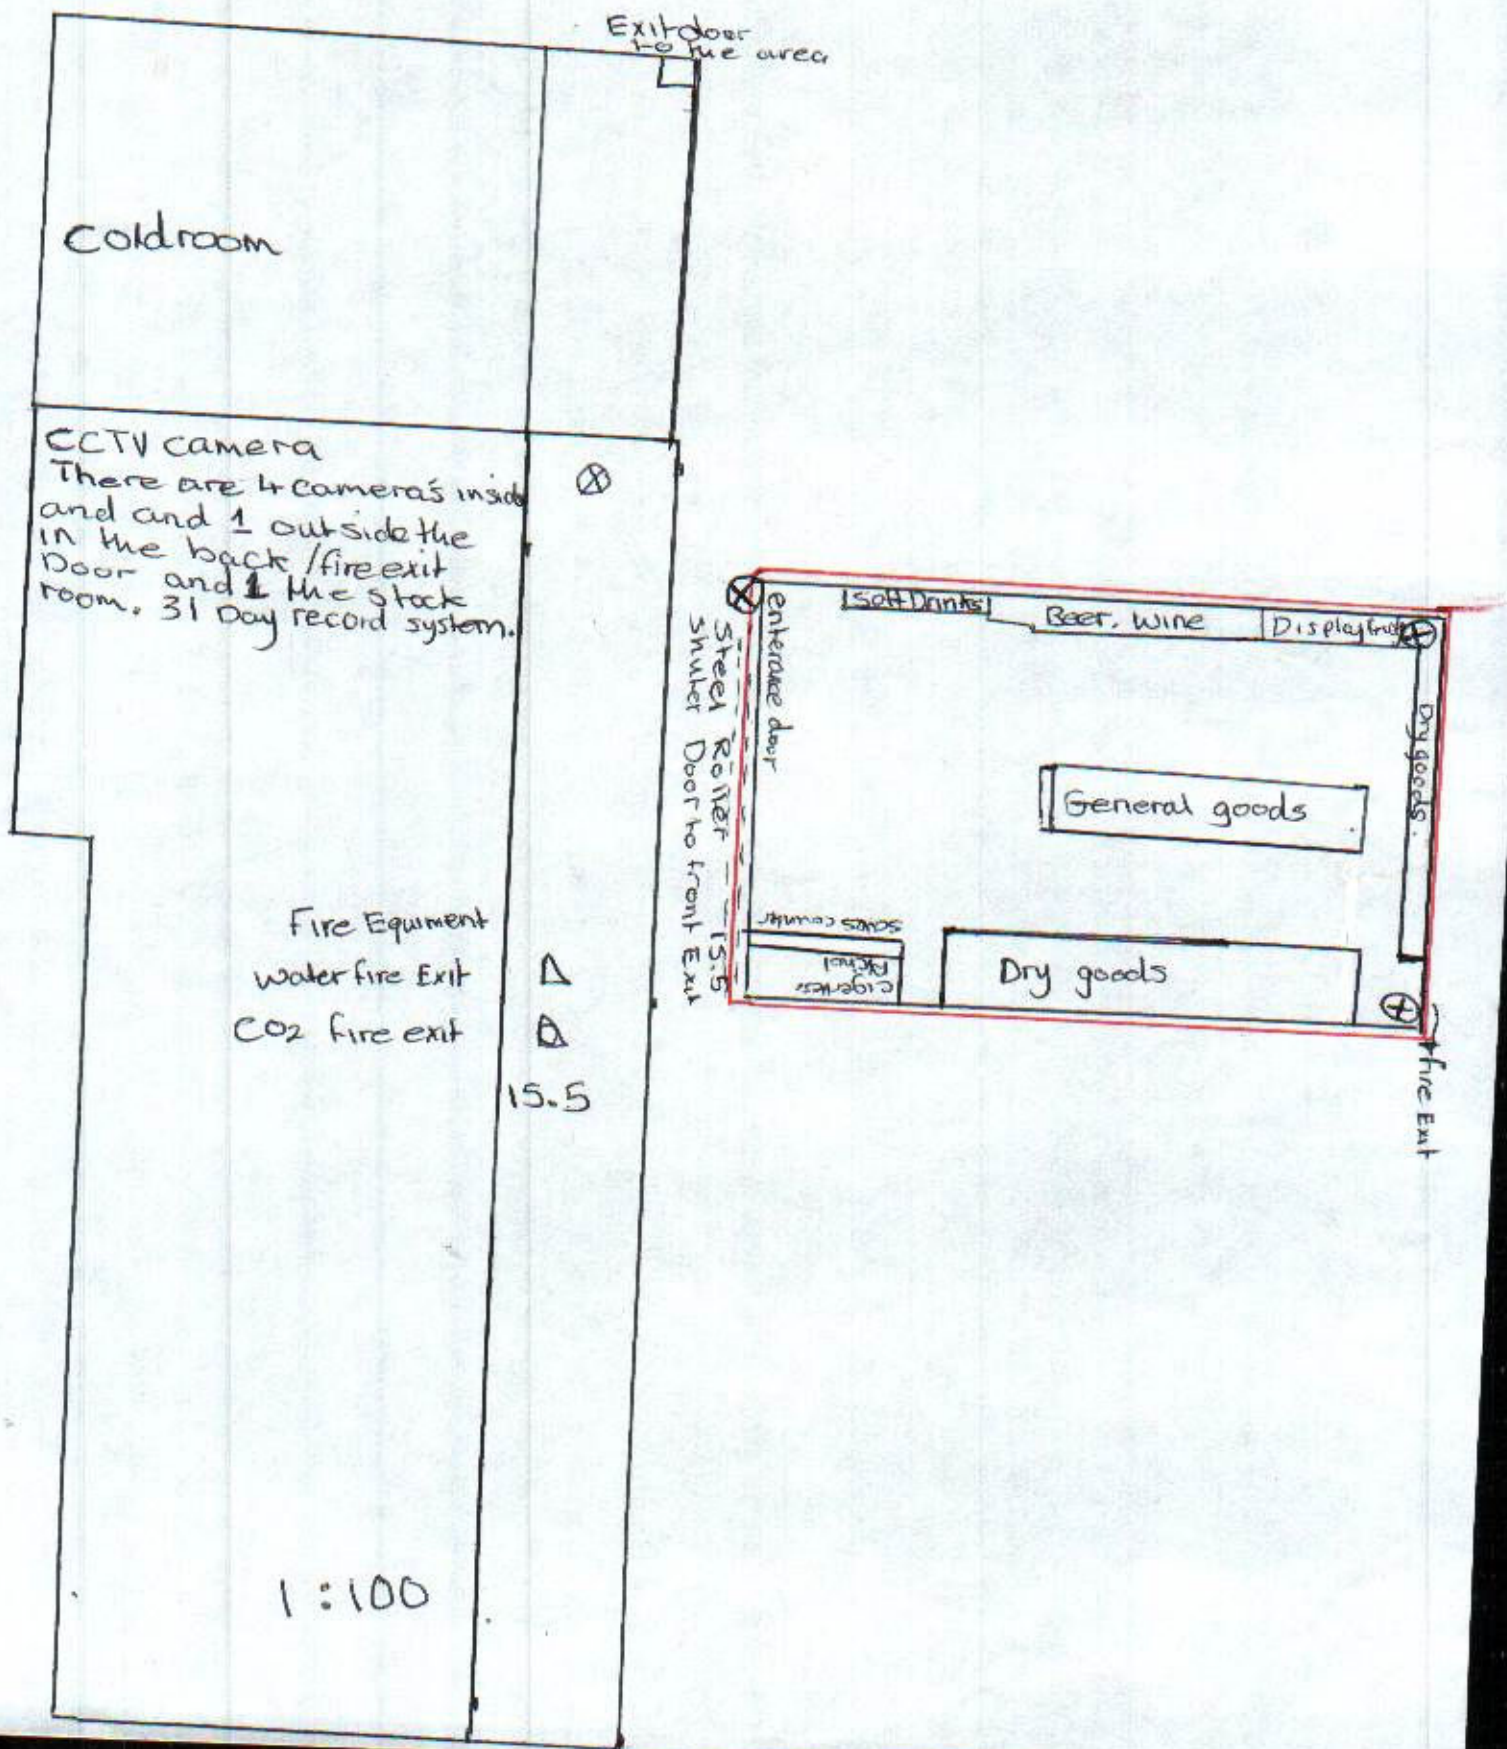 Exit door
to the area
Coldroom
CCTV camera
There are 4 camera's inside
and and 1 outside the
in the back / fire exit
Door and 1 the stock
room. 31 Day record system.
Fire Equment
water fire Exit
CO2 fire exit
15.5
1:100
enterance door
Steel Roller 15.5
Shutter Door to front Exit
Soft Drinks
Beer, wine
Display
Dry goods.
General goods
sales counter
Dry goods
fire Exit